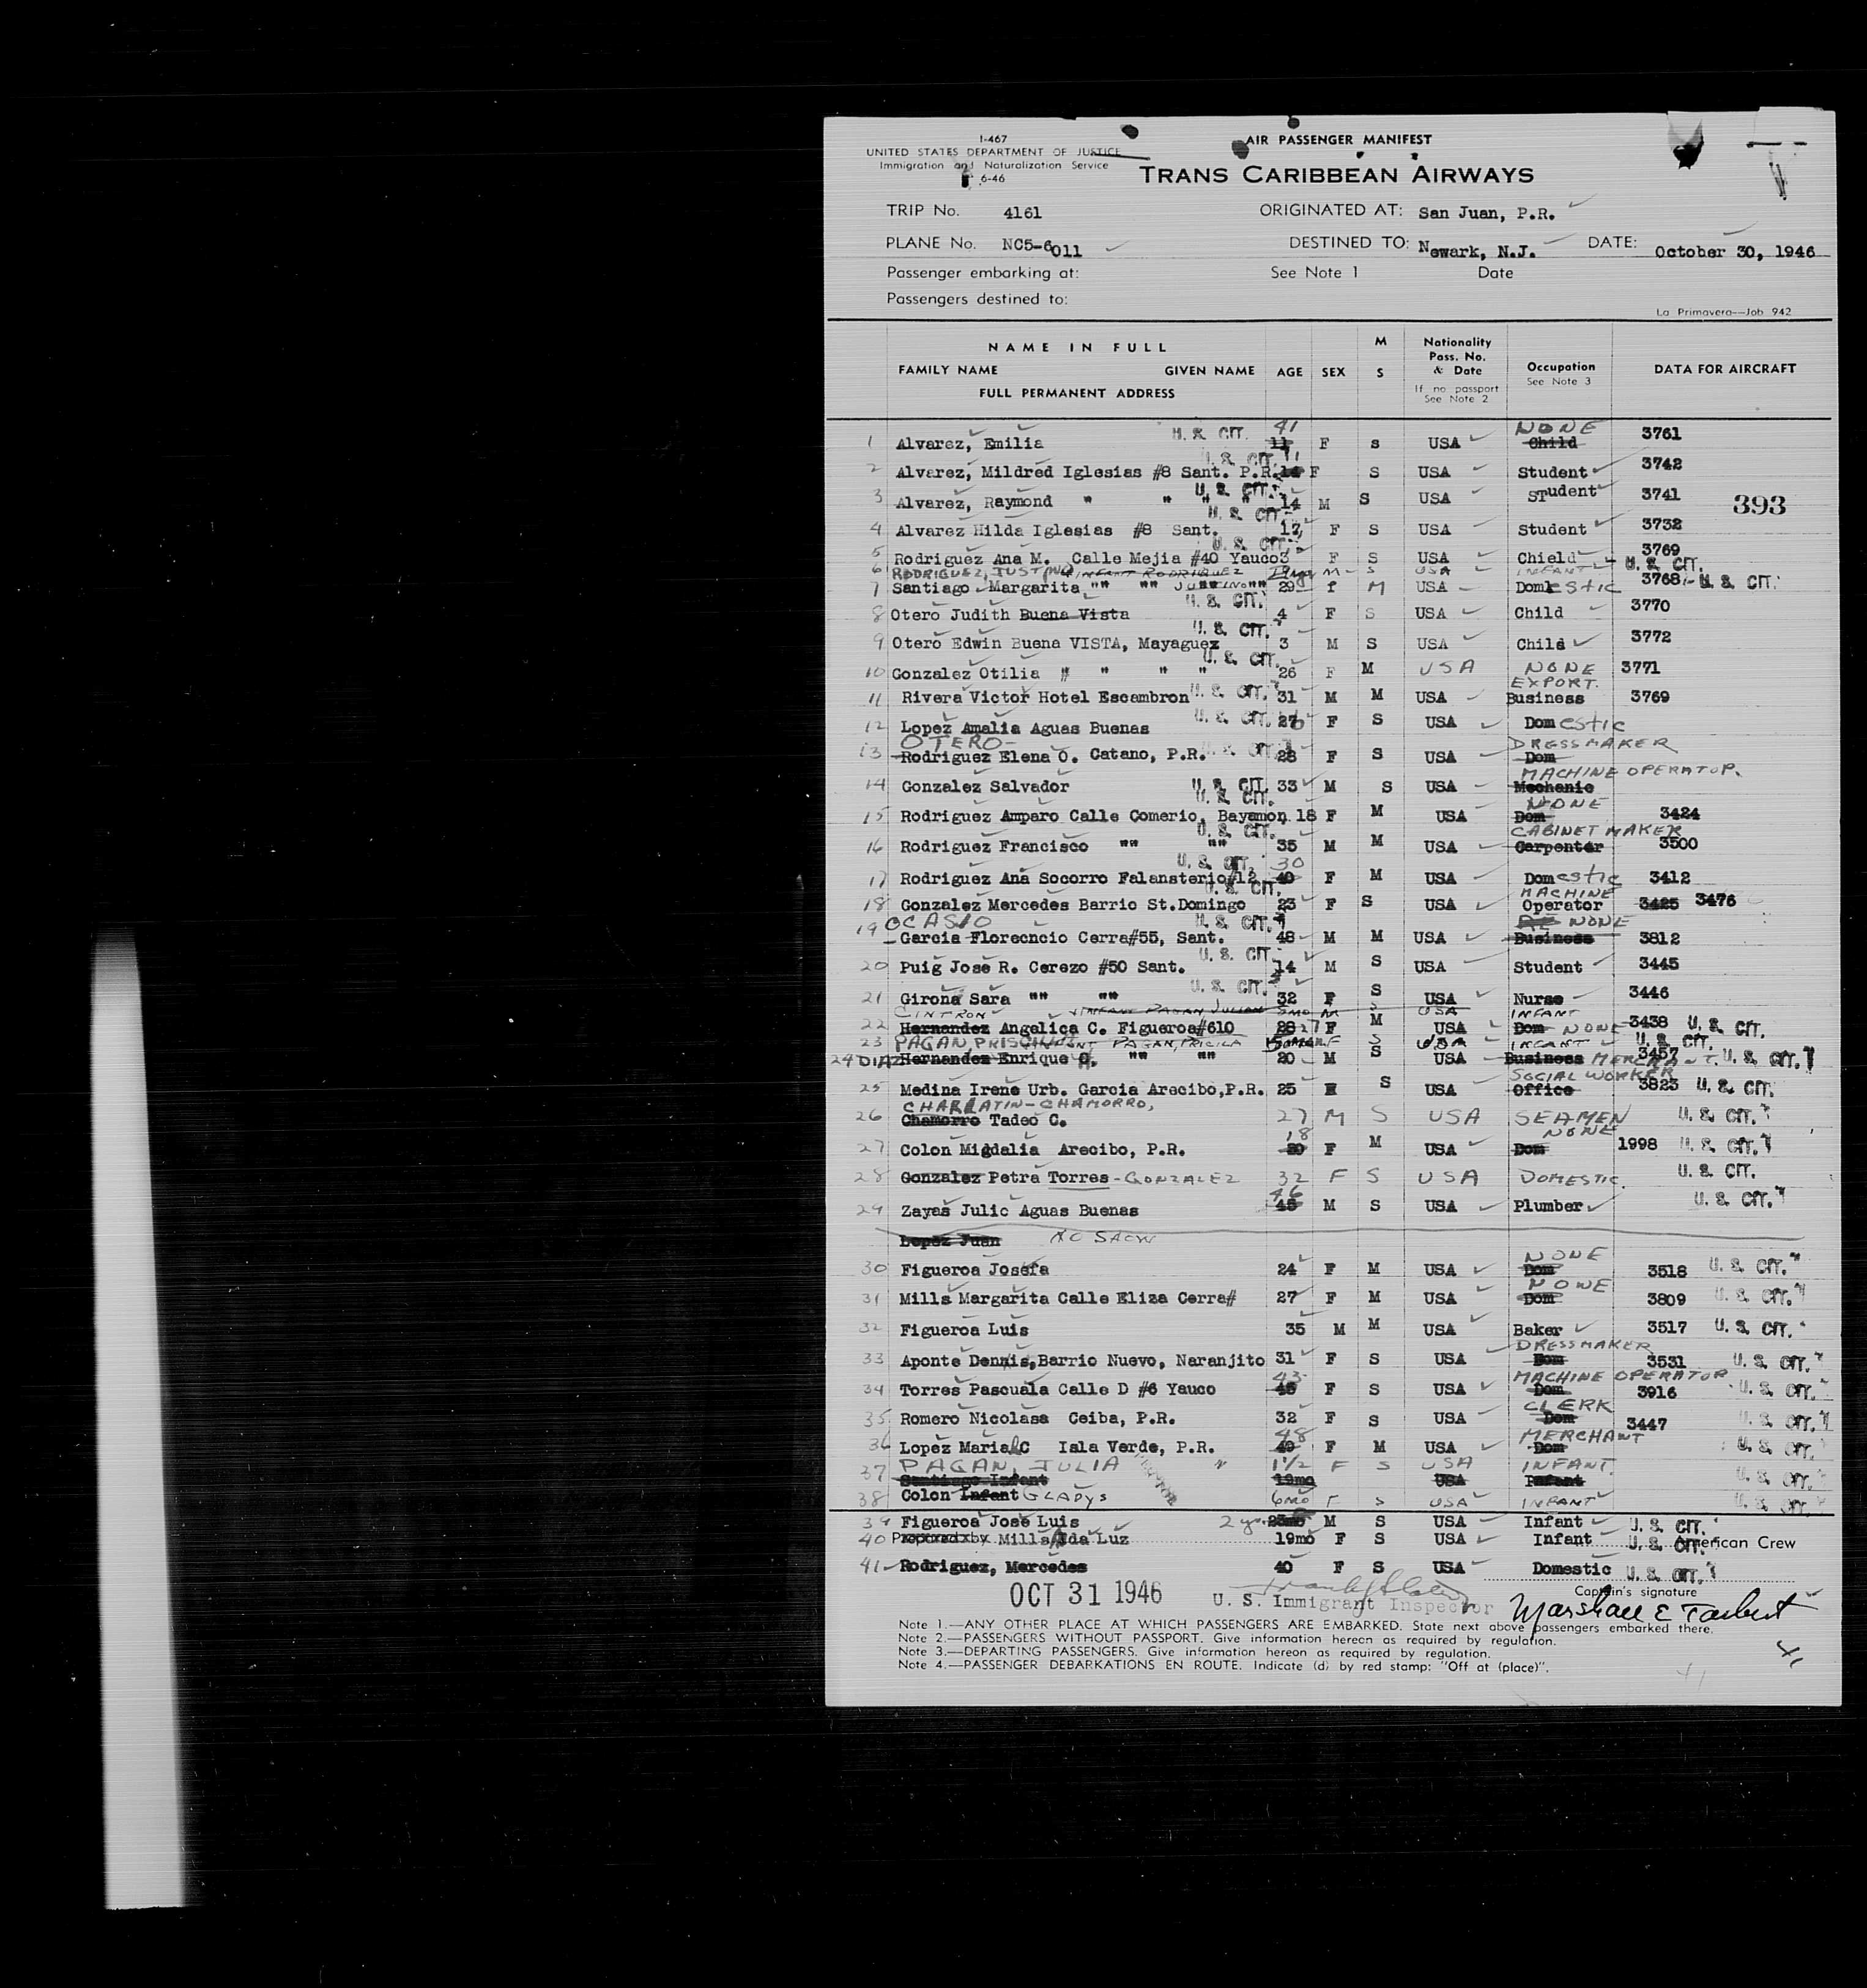 I-467
AIR PASSENGER MANIFEST
UNITED STATES DEPARTMENT OF JUSTICE
Immigration and Naturalization Service
6-46
TRANS CARIBBEAN AIRWAYS
TRIP No. 4161 ORIGINATED AT: San Juan, P.R.
PLANE No. NC5-6011 DESTINED TO: Newark, N.J. DATE: October 30, 1946
Passenger embarking at: See Note 1 Date
Passengers destined to:
La Primavera—Job 942
NAME IN FULL
FAMILY NAME GIVEN NAME
FULL PERMANENT ADDRESS
AGE SEX M S
Nationality Pass. No. & Date
If no passport See Note 2
Occupation See Note 3
DATA FOR AIRCRAFT
1 Alvarez, Emilia U. S. CIT. 41 11 F S USA NONE Child 3761
2 Alvarez, Mildred Iglesias #8 Sant. P.R. U. S. CIT. 11 14 F S USA Student 3742
3 Alvarez, Raymond " " " " U. S. CIT. 14 M S USA Student 3741
393
4 Alvarez Hilda Iglesias #8 Sant. U. S. CIT. 17 F S USA Student 3732
5 Rodriguez Ana M. Calle Mejia #40 Yauco U. S. CIT. 3 F S USA Chield 3769
6 RODRIGUEZ, JUSTINO INFANT RODRIGUEZ M S USA INFANT U. S. CIT.
7 Santiago Margarita "" "" 29 f M USA Domestic 3768 U. S. CIT.
8 Otero Judith Buena Vista U. S. CIT. 4 F S USA Child 3770
9 Otero Edwin Buena VISTA, Mayaguez U. S. CIT. 3 M S USA Child 3772
10 Gonzalez Otilia # " " " U. S. CIT. 26 F M USA NONE 3771
11 Rivera Victor Hotel Escambron U. S. CIT. 31 M M USA EXPORT. Business 3769
12 Lopez Amalia Aguas Buenas U. S. CIT. 26 F S USA Domestic
13 OTERO- Rodriguez Elena O. Catano, P.R. 28 F S USA DRESSMAKER Dom
14 Gonzalez Salvador U. S. CIT. 33 M S USA MACHINE OPERATOR. Mechanic
15 Rodriguez Amparo Calle Comerio, Bayamon U. S. CIT. 18 F M USA NONE Dom 3424
16 Rodriguez Francisco "" "" U. S. CIT. 35 M M USA CABINET MAKER Carpenter 3500
17 Rodriguez Ana Socorro Falansterio#12 U. S. CIT. 30 40 F M USA Domestic 3412
18 Gonzalez Mercedes Barrio St.Domingo U. S. CIT. 23 F S USA MACHINE Operator 3425 3476
19 OCASIO Garcia Florecncio Cerra#55, Sant. U. S. CIT. 48 M M USA NONE Business 3812
20 Puig Jose R. Cerezo #50 Sant. U. S. CIT. 14 M S USA Student 3445
21 Girona Sara "" "" U. S. CIT. 32 F S USA Nurse 3446
INFANT PAGAN JULIAN M S USA INFANT
22 CINTRON Hernandez Angelica C. Figueroa#610 28 27 F M USA Dom NONE 3438 U. S. CIT.
23 PAGAN, PRISCILLA INFANT PAGAN, PRICILA F S USA INFANT U. S. CIT.
24 DIAZ Hernandez Enrique "" "" 20 M S USA Business MERCHANT. 3457 U. S. CIT.
25 Medina Irene Urb. Garcia Arecibo,P.R. 25 S USA SOCIAL WORKER Office 3823 U. S. CIT.
26 CHARLATIN-CHAMORRO, Chamorro Tadeo C. 27 M S USA SEAMEN U. S. CIT.
27 Colon Migdalia Arecibo, P.R. 18 20 F M USA NONE Dom 1998 U. S. CIT.
28 Gonzalez Petra Torres-GONZALEZ 32 F S USA DOMESTIC. U. S. CIT.
29 Zayas Julio Aguas Buenas 46 45 M S USA Plumber U. S. CIT.
Lopez Juan NO SHOW
30 Figueroa Josefa 24 F M USA NONE Dom 3518 U. S. CIT.
31 Mills Margarita Calle Eliza Cerra# 27 F M USA NONE Dom 3809 U. S. CIT.
32 Figueroa Luis 35 M M USA Baker 3517 U. S. CIT.
33 Aponte Dennis,Barrio Nuevo, Naranjito 31 F S USA DRESSMAKER Dom 3531 U. S. CIT.
34 Torres Pascuala Calle D #6 Yauco 43 45 F S USA MACHINE OPERATOR Dom 3916 U. S. CIT.
35 Romero Nicolasa Ceiba, P.R. 32 F S USA CLERK Dom 3447 U. S. CIT.
36 Lopez Maria C Isla Verde, P.R. 48 49 F M USA MERCHANT Dom U. S. CIT.
37 PAGAN, JULIA 1½ F S USA INFANT. U. S. CIT.
Santiago Infant 19mo USA Infant
38 Colon Infant GLADYS 6mo F S USA INFANT U. S. CIT.
39 Figueroa Jose Luis 2 yr M S USA Infant U. S. CIT.
40 Prepared by Mills Ada Luz 19mo F S USA Infant U. S. CIT. American Crew
41 Rodriguez, Mercedes 40 F S USA Domestic U. S. CIT.
OCT 31 1946 U. S. Immigrant Inspector
Captain's signature
Marshall E Tarbut
Note 1.—ANY OTHER PLACE AT WHICH PASSENGERS ARE EMBARKED. State next above passengers embarked there.
Note 2.—PASSENGERS WITHOUT PASSPORT. Give information hereon as required by regulation.
Note 3.—DEPARTING PASSENGERS. Give information hereon as required by regulation.
Note 4.—PASSENGER DEBARKATIONS EN ROUTE. Indicate (d) by red stamp: "Off at (place)".
41
41